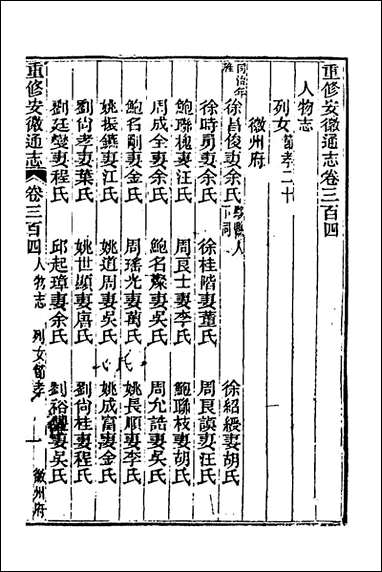 重修安徽通志卷三百四
人物志
列女 節孝二十
徽州府
同治年旌 徐昌俊妻余氏 黟縣人下同 徐紹綬妻胡氏
徐時勇妻余氏 徐桂階妻董氏 周良謨妻汪氏
鮑聯槐妻汪氏 周良士妻李氏 鮑聯枝妻胡氏
周成全妻余氏 鮑名粲妻吳氏 周允誥妻吳氏
鮑名剛妻金氏 周瑤光妻萬氏 姚長順妻李氏
姚振鑣妻江氏 姚道周妻吳氏 姚成富妻金氏
劉尚孝妻葉氏 姚世顯妻唐氏 劉尚桂妻程氏
劉廷燮妻程氏 邱起璋妻余氏 劉裕妻吳氏
重修安徽通志 卷三百四 人物志 列女節孝 一 徽州府